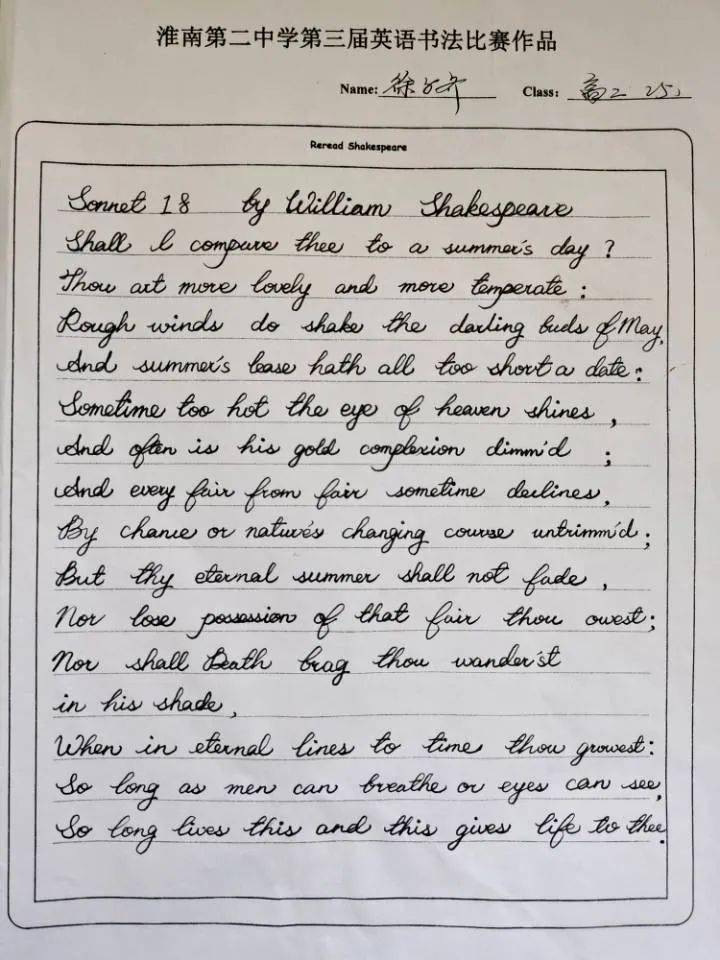 淮南第二中学第三届英语书法比赛作品
Name: 徐 Class: 高二
Reread Shakespeare
Sonnet 18 by William Shakespeare
Shall I compare thee to a summer's day ?
Thou art more lovely and more temperate :
Rough winds do shake the darling buds of May,
And summer's lease hath all too short a date :
Sometime too hot the eye of heaven shines ,
And often is his gold complexion dimm'd ;
And every fair from fair sometime declines,
By chance or nature's changing course untrimm'd ;
But thy eternal summer shall not fade ,
Nor lose possession of that fair thou owest;
Nor shall Death brag thou wander'st
in his shade ,
When in eternal lines to time thou growest:
So long as men can breathe or eyes can see,
So long lives this and this gives life to thee.